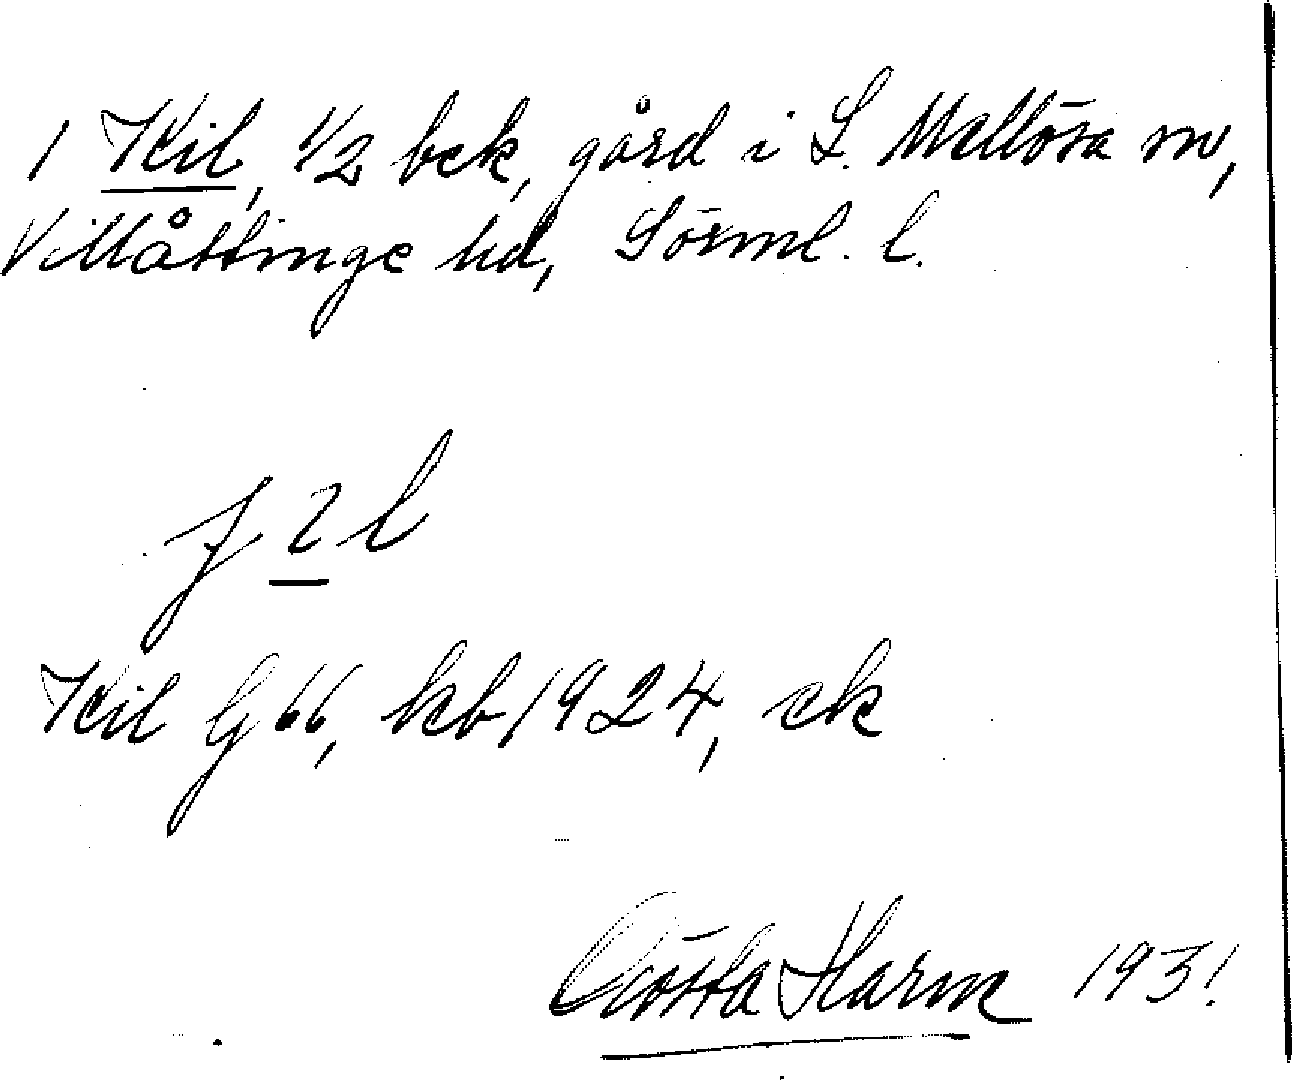 1 Kil, 1/2 bek, gård i L. Mellösa sn,
Villåttinge hd, Sörml. l.
f 2 l
Kil G 66, kb 1924, ek
Gösta Harm 1931